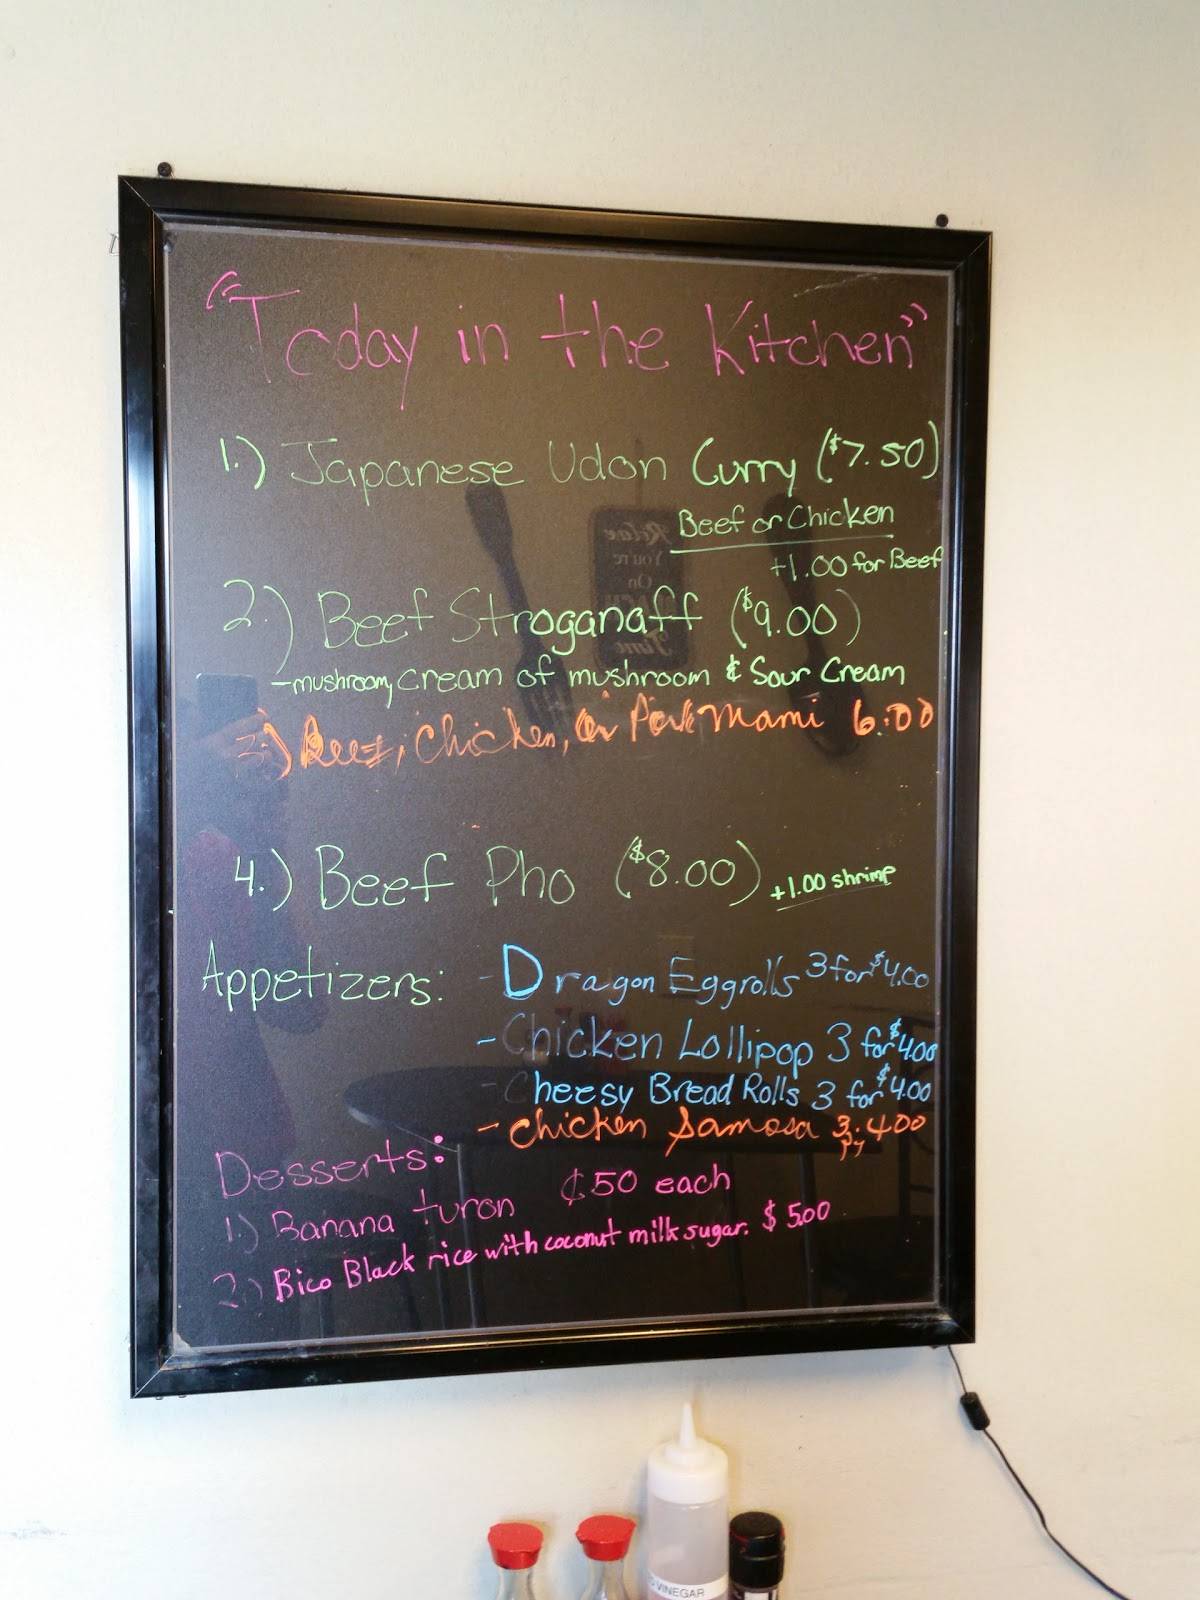 "Today in the Kitchen"
1.) Japanese Udon Curry ($7.50)
Beef or Chicken
+1.00 for Beef
2.) Beef Stroganaff ($9.00)
- mushroom, cream of mushroom & Sour Cream
3.) Beef, Chicken, or Pork Mami 6.00
4.) Beef Pho ($8.00) +1.00 shrimp
Appetizers: - Dragon Eggrolls 3 for $4.00
- Chicken Lollipop 3 for $4.00
- Cheesy Bread Rolls 3 for $4.00
- Chicken Samosa 3 400
Desserts:
1.) Banana turon ¢50 each
2.) Bico Black rice with coconut milk sugar. $ 5.00
Relax
You're
On
Time
VINEGAR